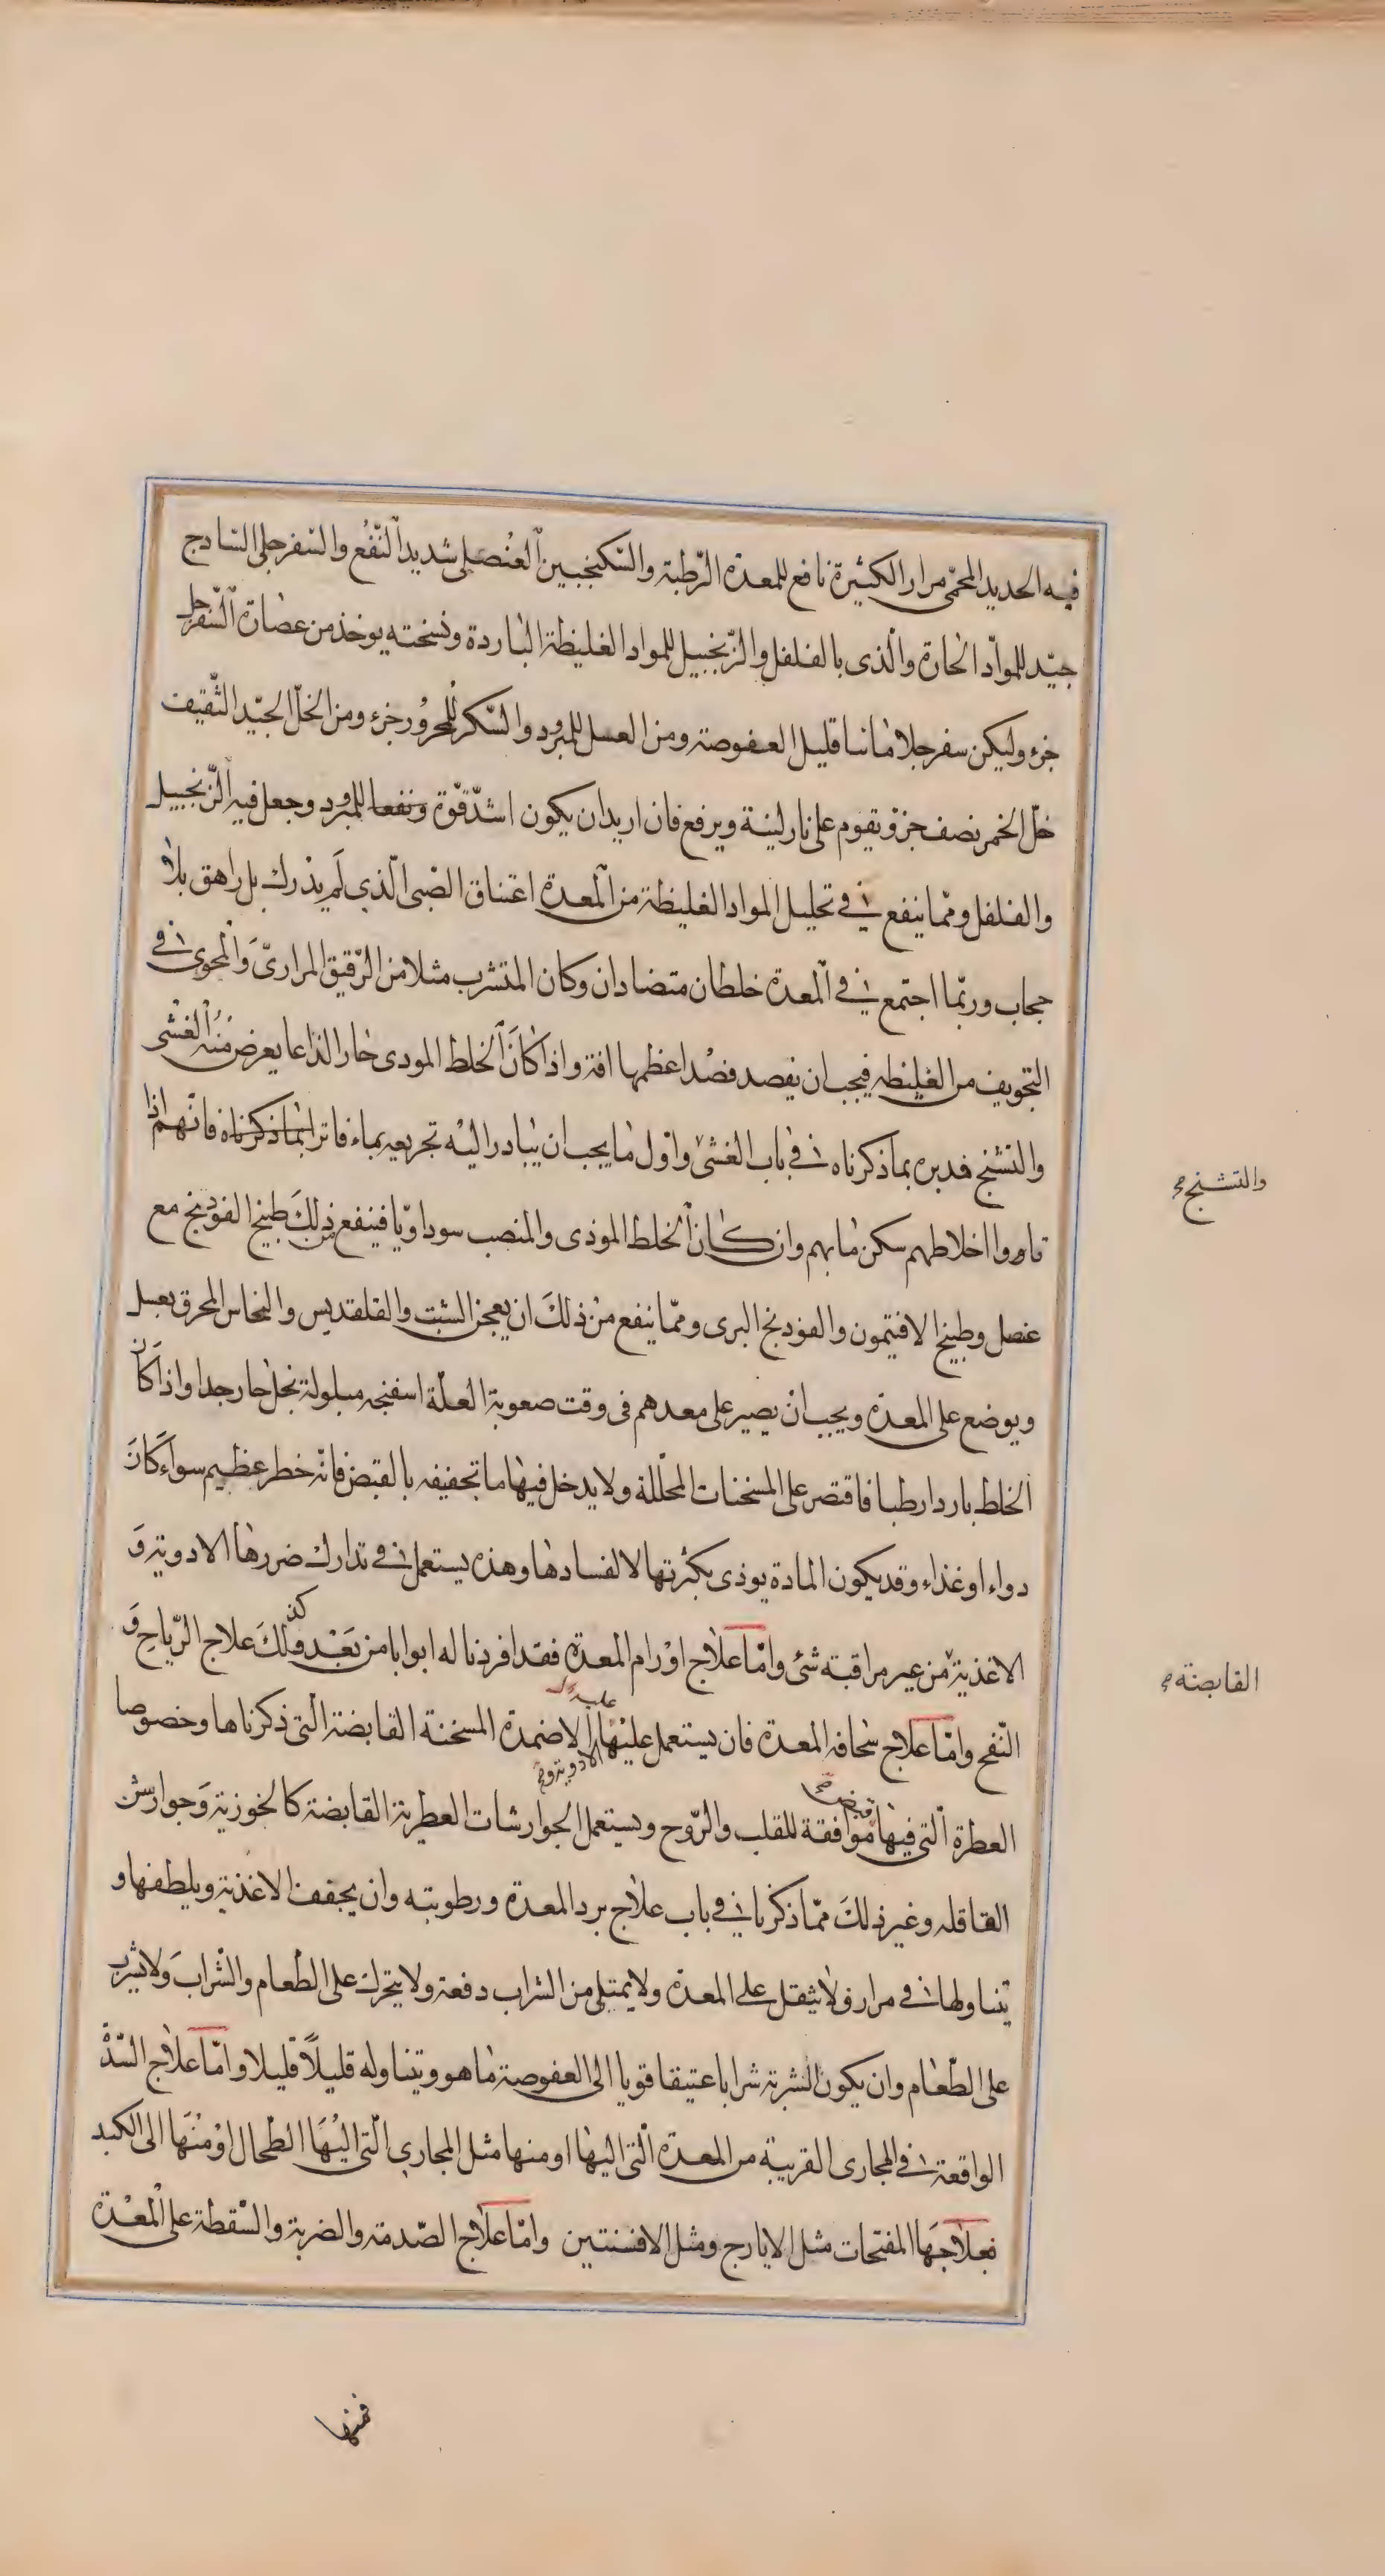 فيه الحديد المحمى مرارا الكثيرة نافع للمعدة الرّطبة والسّكنجبين العُنصلى شديد النّفع والسّفرجلى السّاذج
جيّد للموادّ الحارة والّذى بالفلفل والزّنجبيل للمواد الغليظة الباردة ونسخته يوخذ من عصارة السّفرجل
جزء وليكن سفرجلا مائيا قليل العفوصة ومن العسل للمبرود والسّكر للمحرور جزء ومن الخلّ الجيّد الثّقيف
خلّ الخمر نصف جزؤ يقوم على نار لينة ويرفع فان اريد ان يكون اشدّ قوّة ونفعا للمبرود وجعل فيه الزّنجبيل
والفلفل وممّا ينفع فى تحليل المواد الغليظة من المعدة اعتناق الصّبى الّذي لَم يدْرك بل راهق بلا
حجاب وربّما اجتمع فى المعدة خلطان متضادان وكان المتشرب مثلا من الرّقيق المرارىّ وَالمحوى فى
التجويف من الغليظه فيجب ان يفصد فصْد اعظمها افة واذا كانَ الخلط الموذى حارا لذاعا يعرض مِنْه الْغشى
والتشنج فدبره بما ذكرناه فى باب الغشى واوّل ما يجب ان يبادر اليْه تجريعه بماء فاتر بما ذكرناه فانّهم اذا
قاءوا اخلاطهم سكن ما بهم وان كان الخلط الموذى والمنصب سوداويّا فينفع من ذلكَ طبيخ الفودنج مع
عنصل وطبيخ الافتيمون والفودنج البرى وممّا ينفع منْ ذلكَ ان يعجن الشبت والقلقديس والنحاس المحرق بعسل
ويوضع على المعدة ويجب انْ يصير على معدهم فى وقت صعوبة العلّة اسفنجه مبلولة بخل حار جدا واذا كَانَ
الخلط باردا رطبا فاقتصر على المسخنات المحلّلة ولا يدخل فيها ما تجفيفه بالقبض فانّه خطر عظيم سواءً كانَ
دواء او غذاء وقد يكون المادة يوذى بكثرتها لا لفسادها وهذه يستعمل فى تدارك ضررها الادوية وَ
الاغذية من غير مراقبة شئ وامّا علاج اوْرام المعدة فقد افردنا له ابوابا من بَعْد وكذلكَ علاج الرّياحِ وَ
النّفح وامّا علاج سخافه المعدة فان يستعمل عليْها الاضمدة المسخنة القابضة الّتى ذكرناها وخصوصا
عليه
الادوية و
العطرة الّتى فيها موافقة للقلب والرّوح ويستعمل الجوارشات العطرية القابضة كالخوزية وَجوارش
القاقله وغير ذلكَ ممّا ذكرنا فى باب علاج برد المعدة ورطوبته وان يجفف الاغذية ويلطفها و
يتناولها فى مرار ولا يثقل على المعدة ولا يمتلى من الشراب دفعة ولا يتحرك على الطّعام والشّراب وَلا يشرب
على الطّعام وان يكون الشربة شرابا عتيقا قويا الى العفوصة ما هو ويتناوله قليلاً قليلا وامّا علاج السّدة
الواقعة فى المجارى القريبة من المعدة الّتى اليها او منها مثل المجاري الّتى اليْهَا الطّحال اوْ منْهَا الى الكبد
فعلاجهَا المفتحات مثل الايارج ومثل الافسنتين وامّا علاج الصّدمة والضربة والسّقطة على المعْدة
والتشنج صح
القابضة صح
فمنها